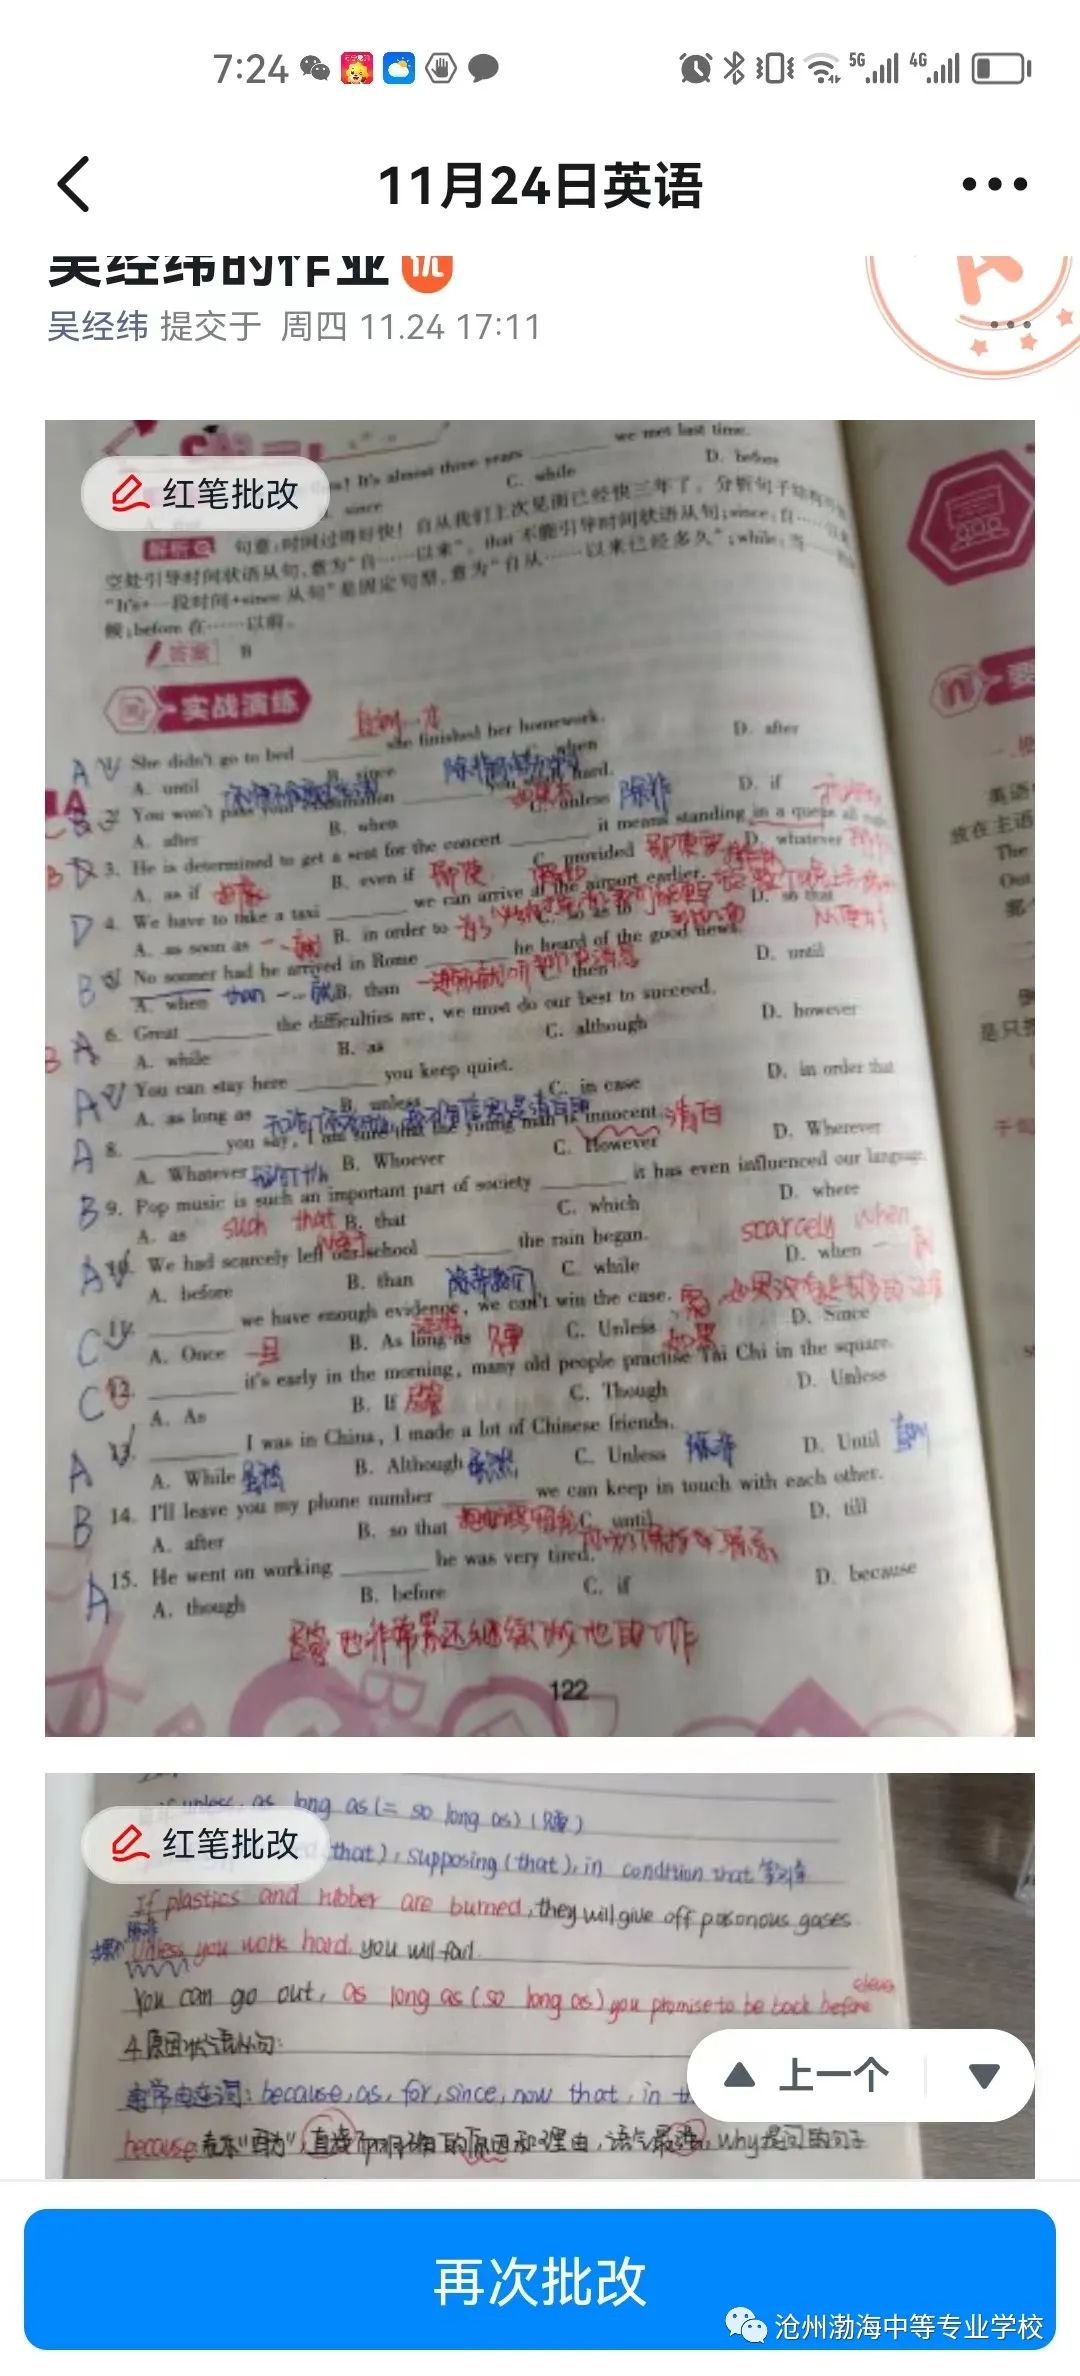 7:24
5G
4G
11月24日英语
吴经纬的作业 优
吴经纬 提交于 周四 11.24 17:11
红笔批改
It's almost three years we met last time.
since C. while D. before
解析 句意:时间过得好快!自从我们上次见面已经快三年了。分析句子结构可知
空处引导时间状语从句,意为"自……以来"。that 不能引导时间状语从句;since:自……以来
"It's+一段时间+since 从句"是固定句型,意为"自从……以来已经多久";while:当……
候;before 在……以前。
答案 B
实战演练
A 1. She didn't go to bed ______ she finished her homework.
A. until B. since C. when D. after
2. You won't pass your examination ______ you study hard.
A. after B. when C. unless 除非 D. if
3. He is determined to get a seat for the concert ______ it means standing in a queue all night.
A. as if B. even if 即使 C. provided D. whatever
D 4. We have to take a taxi ______ we can arrive at the airport earlier.
A. as soon as B. in order to 为了 C. so as to D. so that
B 5. No sooner had he arrived in Rome ______ he heard of the good news.
A. when than 一…就 B. than C. then D. until
B A 6. Great ______ the difficulties are, we must do our best to succeed.
A. while B. as C. although D. however
A 7. You can stay here ______ you keep quiet.
A. as long as B. unless C. in case D. in order that
A 8. ______ you say, I am sure that the young man is innocent. 清白
A. Whatever B. Whoever C. However D. Wherever
B 9. Pop music is such an important part of society ______ it has even influenced our language.
A. as such that B. that C. which D. where
A 10. We had scarcely left our school ______ the rain began. scarcely when
A. before B. than C. while D. when
C 11. ______ we have enough evidence, we can't win the case.
A. Once 一旦 B. As long as 只要 C. Unless 如果 D. Since
C 12. ______ it's early in the morning, many old people practise Tai Chi in the square.
A. As B. If C. Though D. Unless
A 13. ______ I was in China, I made a lot of Chinese friends.
A. While B. Although 虽然 C. Unless 除非 D. Until 直到
B 14. I'll leave you my phone number ______ we can keep in touch with each other.
A. after B. so that C. until D. till
A 15. He went on working ______ he was very tired.
A. though B. before C. if D. because
尽管他非常累还继续不停地工作
122
unless, as long as (= so long as) (只要)
红笔批改
that), supposing (that), in condition that 等引导
If plastics and rubber are burned, they will give off poisonous gases
除非
Unless you work hard, you will fail.
You can go out, as long as (so long as) you promise to be back before
eleven
4.原因状语从句:
通常由连词: because, as, for, since, now that, in
because:表示"因为",直接而明确的原因和理由,语气最强, Why提问的句子
上一个
再次批改
沧州渤海中等专业学校